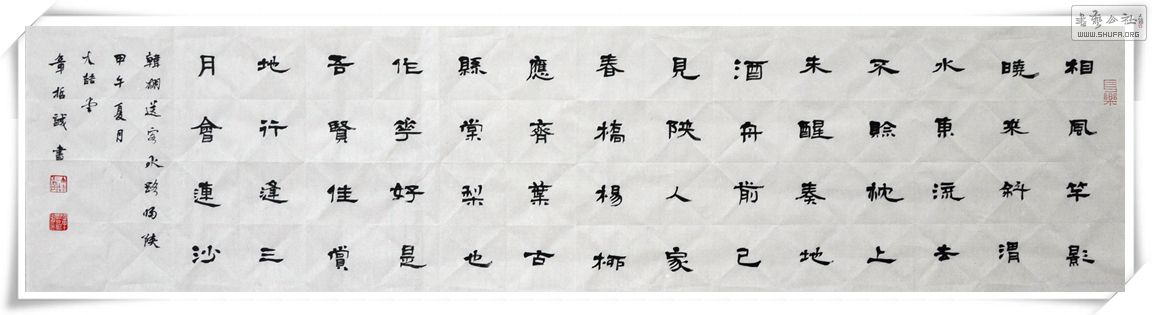 相風竿影
曉來斜渭
水東流去
不賒枕上
未醒秦地
酒舟前已
見陝人家
春橋楊柳
應齊葉古
縣棠梨也
作華好是
吾賢佳賞
地行逢三
月會蓮沙
韓翃送客水路歸陝
甲午夏月
章哲誠書
長樂
書藝公社
WWW.SHUFA.ORG